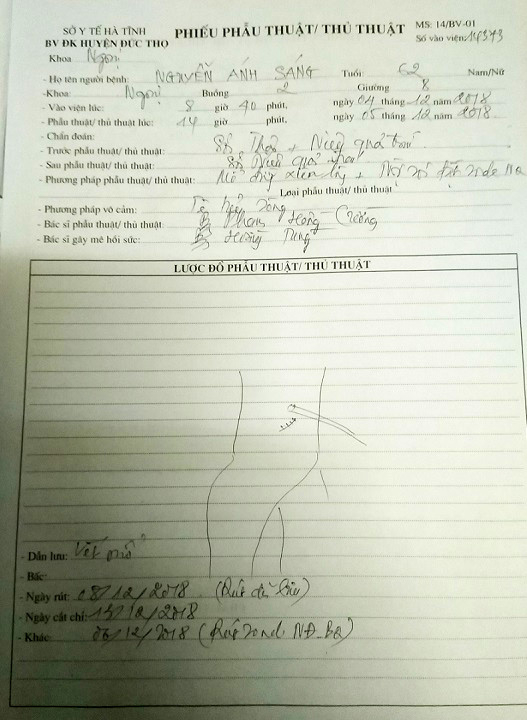 SỞ Y TẾ HÀ TĨNH
BV ĐK HUYỆN ĐỨC THỌ
PHIẾU PHẪU THUẬT/ THỦ THUẬT
MS: 14/BV-01
Số vào viện: 14373
Khoa Ngoại
- Họ tên người bệnh: NGUYỄN ÁNH SÁNG Tuổi: 62 Nam/Nữ
-Khoa: Ngoại Buồng 2 Giường 8
- Vào viện lúc: 8 giờ 40 phút, ngày 04 tháng 12 năm 2018
- Phẫu thuật/ thủ thuật lúc: 14 giờ phút, ngày 05 tháng 12 năm 2018
- Chẩn đoán:
- Trước phẫu thuật/ thủ thuật: Sỏi Thận + Niệu quản
- Sau phẫu thuật/ thủ thuật: Sỏi Niệu quản
- Phương pháp phẫu thuật/ thủ thuật: Mổ lấy + đặt sonde
Loại phẫu thuật/ thủ thuật
- Phương pháp vô cảm: Tê tủy sống
- Bác sĩ phẫu thuật/ thủ thuật: BS Hồng Cường
- Bác sĩ gây mê hồi sức: BS Hoàng Tùng
LƯỢC ĐỒ PHẪU THUẬT/ THỦ THUẬT
- Dẫn lưu: Vết mổ
- Bấc:
- Ngày rút: 08/12/2018 (Rút dẫn lưu)
- Ngày cắt chỉ: /12/2018
- Khác: 06/12/2018 (Rút sonde NĐ-BQ)